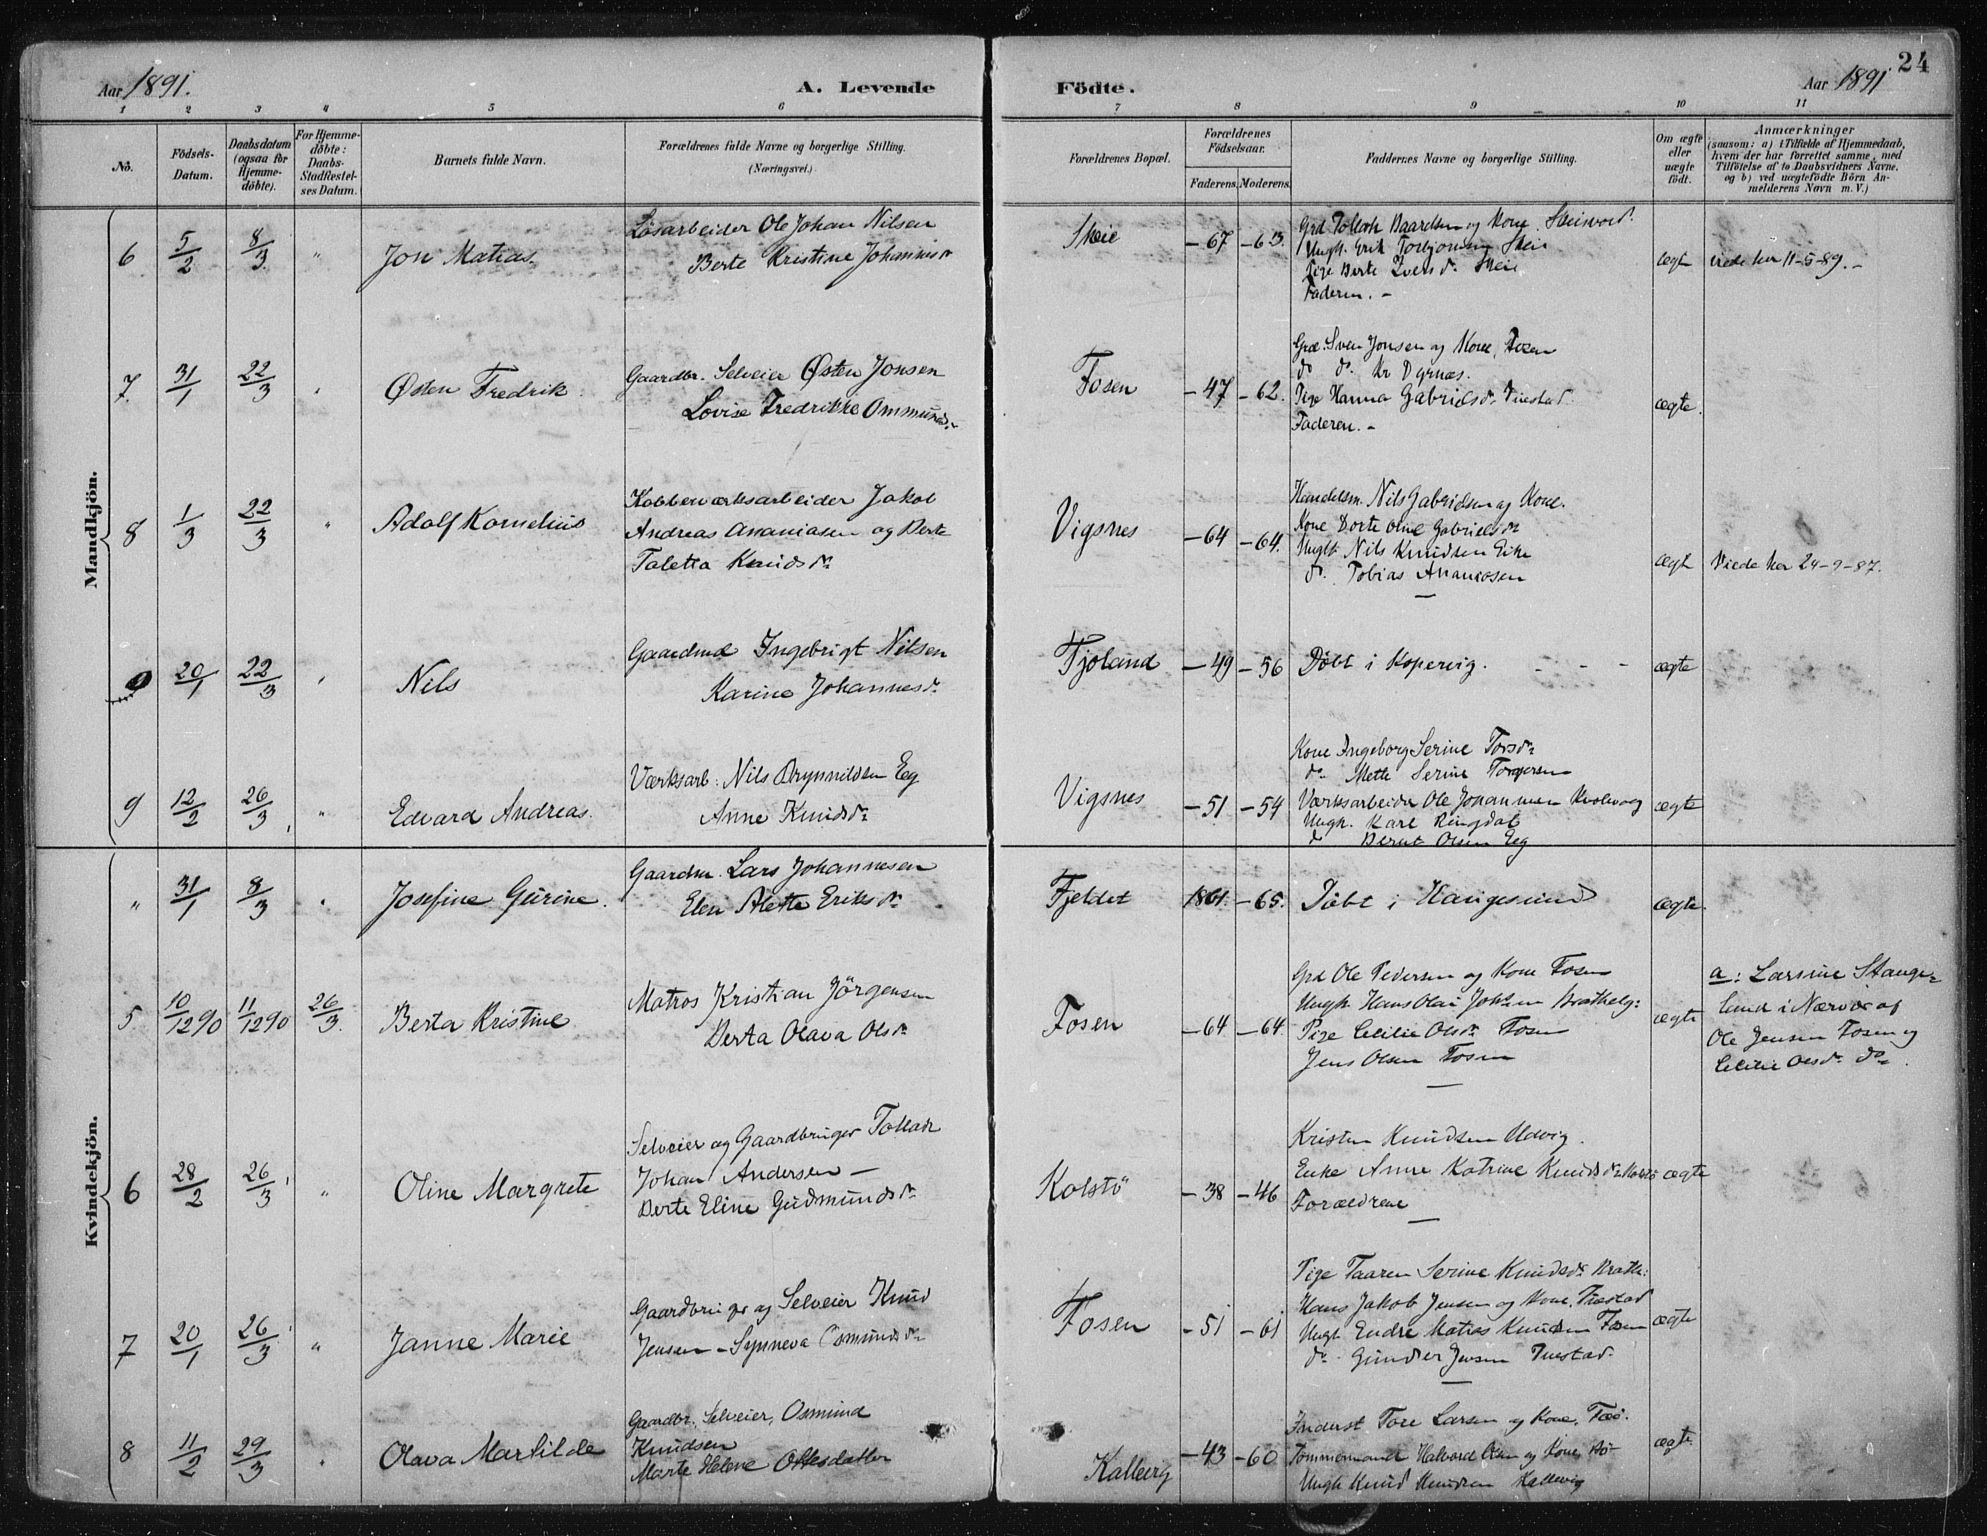 Aar 1891.
A. Levende
Födte.
Aar 1891
24
1 2 3 4 5 6 7 8 9 10 11
No.
Födsels-
Datum.
Daabsdatum
(ogsaa for
Hjemme-
döbte).
For Hjemme-
döbte:
Daabs-
Stadfæstel-
ses Datum.
Barnets fulde Navn.
Forældrenes fulde Navne og borgerlige Stilling.
(Næringsvei.)
Forældrenes Bopæl.
Forældrenes
Födselsaar.
Faderens. Moderens.
Faddernes Navne og borgerlige Stilling.
Om ægte
eller
uægte
födt.
Anmærkninger
(saasom: a) i Tilfælde af Hjemmedaab,
hvem der har forrettet samme, med
Tilföielse af to Daabsvidners Navne,
og b) ved uægtefödte Börn An-
melderens Navn m. V.)
Mandkjön.
6 5/2 8/3 "
Jon Matias.
Løsarbeider Ole Johan Nilsen
Berte Kristine Johannisdr
Skeie
-67 -63.
Grd Tollak Baardsen og Kone
Ungk. Erik Torbjørnsen Skeie
Pige Berte Skeie
Faderen. -
ægt
viede her 11-5-89. -
7. 31/1 22/3 "
Østen Fredrik
Gaardbr. Selveier Østen Jonsen
Lovise Fredrikke Ommundsdr
Fosen
-47 -62.
Grd. Sven Jonsen og Kone, Fosen
do do
Pige Hanna Gabrielsdr
Faderen. -
ægte.
8 1/3 22/3 "
Adolf Kornelius
Kobberværksarbeider Jakob
Andreas Ananiasen og Berte
Taletta Knudsdr
Vigsnes
-64 -64.
Handelsm. Nils Gabrielsen og Kone.
Kone Dorte Oline Gabrielsdr
Ungk. Nils Knudsen Eike
do. Tobias Ananiasen
ægt
Viede her 24-9-87.
9 20/1 22/3 "
Nils
Gaardmd Ingebrigt Nilsen
Karine Johannesdr
Fjoland
-49 -56
Döbt i Kopervig. - - -
ægte
9 12/2 26/3 "
Edvard Andreas.
Værksarb. Nils Brynnildsen Eeg
Anne Knudsdr
Vigsnes
-51 -54
Kone Ingeborg Serine Torsdr
do Mette Serine Torgersen
Værksarbeider Ole Johannesen
Ungk. Karl Ringdal
do Bernt Olsen Eeg
ægte
Kvindekjön.
" 31/1 8/3 "
Josefine Gurine.
Gaardm. Lars Johannesen
Elen Alette Eriksdr
Fjeldet
1861. -65.
Döbt i Haugesund
ægte
5 10/12 90 11/12 90 26/3.
Berta Kristine
Matros Kristian Jörgensen
Berta Olava Olsdr
Fosen
-64 -64.
Grd Ole Pedersen og Kone Fosen
Ungk. Hans Olai
Pige Cecilie Olsdr Fosen
Jens Olsen Fosen
ægte
a: Larsine Stange-
land i Nærvær af
Ole Jensen Fosen og
Cecilie Olsdr do
6 28/2 26/3 "
Oline Margrete
Selveier og Gaardbruger Tollak
Johan Andersen -
Berte Eline Gudmundsdr
Kolstö
-38 -46
Kristen Knudsen Udvig.
Enke Anne Katrine Knudsdr Kolstö
Forældrene
ægte
7 20/1 26/3 "
Janne Marie
Gaardbruger og Selveier Knud
Jensen - Synneva Osmundsdr
Fosen
-51 -61
Pige Taaren Serine Knudsdr
Hans Jakob Jensen og Kone,
Ungk Endre Matias Knudsen Fosen
do. Gunder Jensen
ægte
8 11/2 29/3 "
Olava Martilde
Gaardbr. Selveier, Osmund
Knudsen
Marte Helene Ottesdatter
Kalberg
-43 -60
Inderst Tore Larsen og Kone,
Tömmermand Halvard Olsen og Kone,
Ungk Knud Knudsen Kallevig
ægt